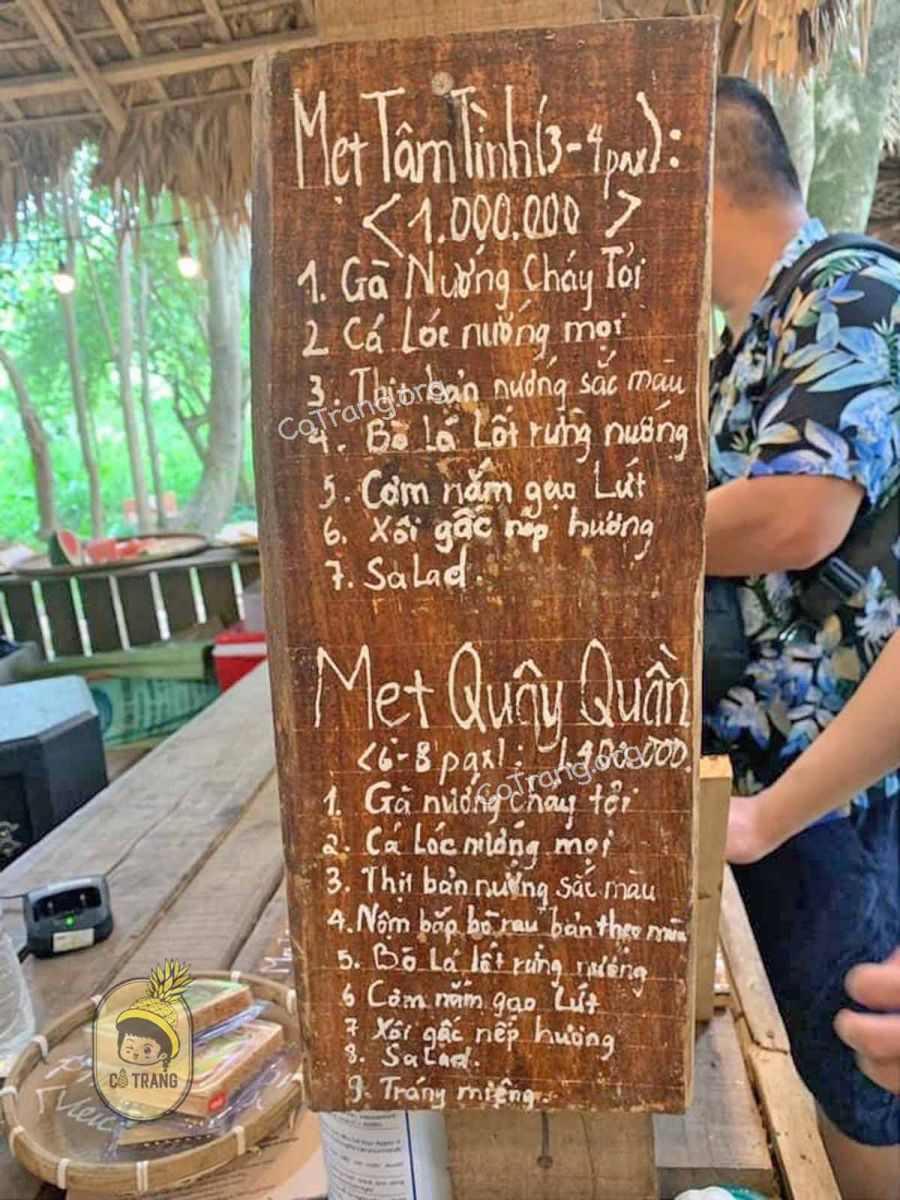 Mẹt Tâm Tình (3-4 pax):
<1.000.000>
1. Gà Nướng Cháy Tỏi
2 Cá Lóc nướng mọi
3. Thịt bản nướng sắc màu
CoTrang.org
4. Bò Lá Lốt rừng nướng
5. Cơm nắm gạo Lứt
6. Xôi gấc nếp hương
7. Salad.
Mẹt Quây Quần
<6-8 pax): 1.400.000.
CoTrang.org
1. Gà nướng cháy tỏi
2. Cá Lóc nướng mọi
3. Thịt bản nướng sắc màu
4. Nộm bắp bò rau bản theo mùa
5. Bò Lá lốt rừng nướng
6 Cơm nắm gạo Lứt
7. Xôi gấc nếp hương
8. Salad.
9. Tráng miệng.
CÔ TRANG